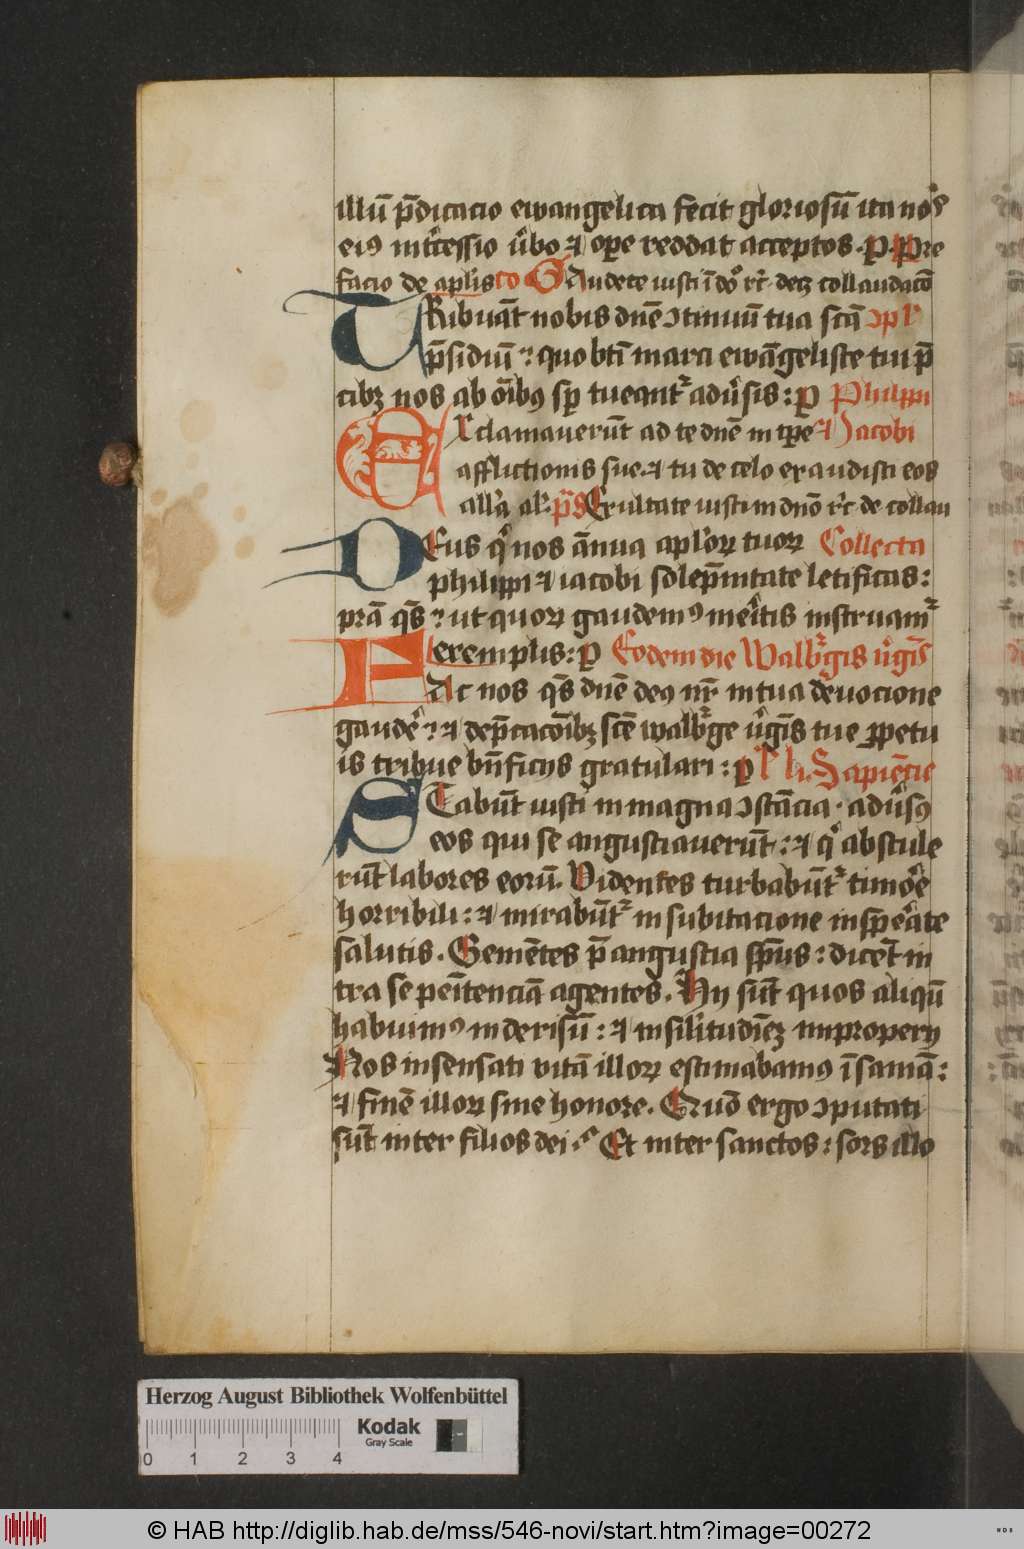 illū p̄dicacio ewangelica fecit gloriosū ita nos
eiꝰ int̕cessio v̕bo ⁊ oꝑe reddat acceptos · ꝑ · Pre
facio de apl̄is co Gaudete iusti ī dō rc̄ · decꝫ collaudacō
TRibuāt nobis dnē ↄtinuū tua scā ↄpl
p̄sidiū : quo bt̄i marci ewāgeliste tui p̄
cibꝫ nos ab oībꝰ sꝑ tueant᷑ adu̕sis : ꝑ Philippi
EXclamauerūt ad te dnē in tꝑe ⁊ Jacobi
afflictionis sue · ⁊ tu de celo exaudisti eos
all̄a al̄. ps̄ Exultate iusti in dnō rc̄ de collau
DEus q̕ nos ānua apl̕oꝝ tuoꝝ Collecta
philippi ⁊ iacobi solēpnitate letificas :
prā qs̄ : ut quoꝝ gaudemꝰ mei̕tis instruam᷑
exemplis : ꝑ Eodem die Walb᷑gis v̕gīs
FAc nos qs̄ dnē deꝰ nr̄ in tua deuocione
gaude̕ : ⁊ dep̄cacōibꝫ scē walb᷑ge v̕gīs tue ꝑpetu
is tribue bn̄ficijs gratulari : ꝑ li. Sapiēcie
STabūt iusti in magna ↄstācia · adu̕sꝰ
eos qui se angustiauerūt : ⁊ q̕ abstule
rūt labores eorū. Videntes turbabūt᷑ timo̕e
horribili : ⁊ mirabūt᷑ in subitacione inspe̕ate
salutis. Gemētes p̄ angustia sp̄us : dicēt in
tra se peītenciā agentes. Hij sūt quos aliqn̄
habuimꝰ in derisū : ⁊ in sil̕itudīeꝫ improperij
Nos insensati vitā illoꝝ estimabamꝰ īsaniā :
⁊ finē illoꝝ sine honore. Quō ergo ↄputati
sūt inter filios dei : Et inter sanctos : sors illo
Herzog August Bibliothek Wolfenbüttel
Kodak
Gray Scale
0 1 2 3 4
© HAB http://diglib.hab.de/mss/546-novi/start.htm?image=00272